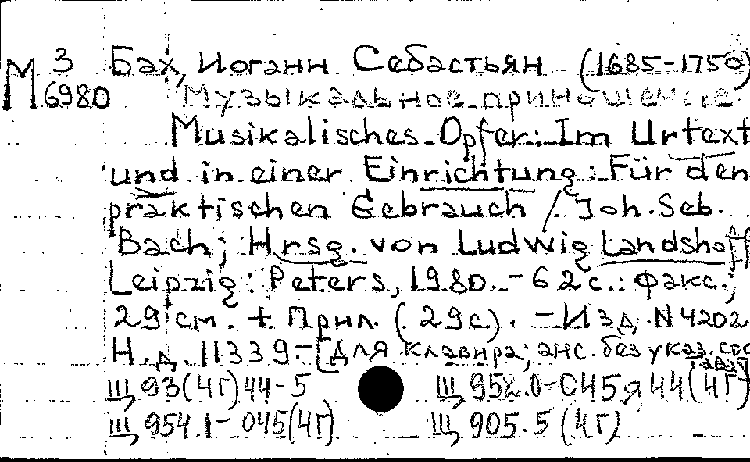 М 3/6980
Бах, Иоганн Себастьян (1685-1750)
Музыкальное приношение.
Musikalisches Opfer: Im Urtext
und in einer Einrichtung: Für den
praktischen Gebrauch / Joh. Seb.
Bach; Hrsg. von Ludwig Landshoff
Leipzig: Peters, 1980. - 62 с.: факс.;
29 см. + Прил. (29 с). - Изд. N 4202
Н. д. 11339. - [Для клавира; анс. без указ.
Щ 93(4Г)44-5 Щ 952.0-045я44(4Г)
Щ 954.1-045(4Г) Щ 905.5(4Г)